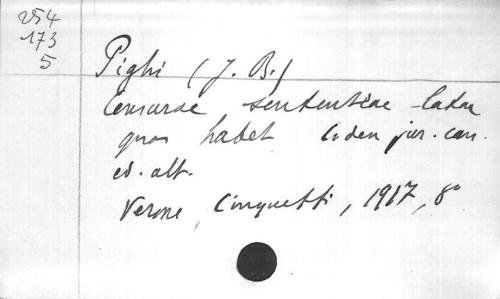 254
173
5
Pighi (J. B.)
Censurae sententiae latae
quas habet Codex jur. can.
ed. alt.
Verone, Cinquetti, 1917, 8°